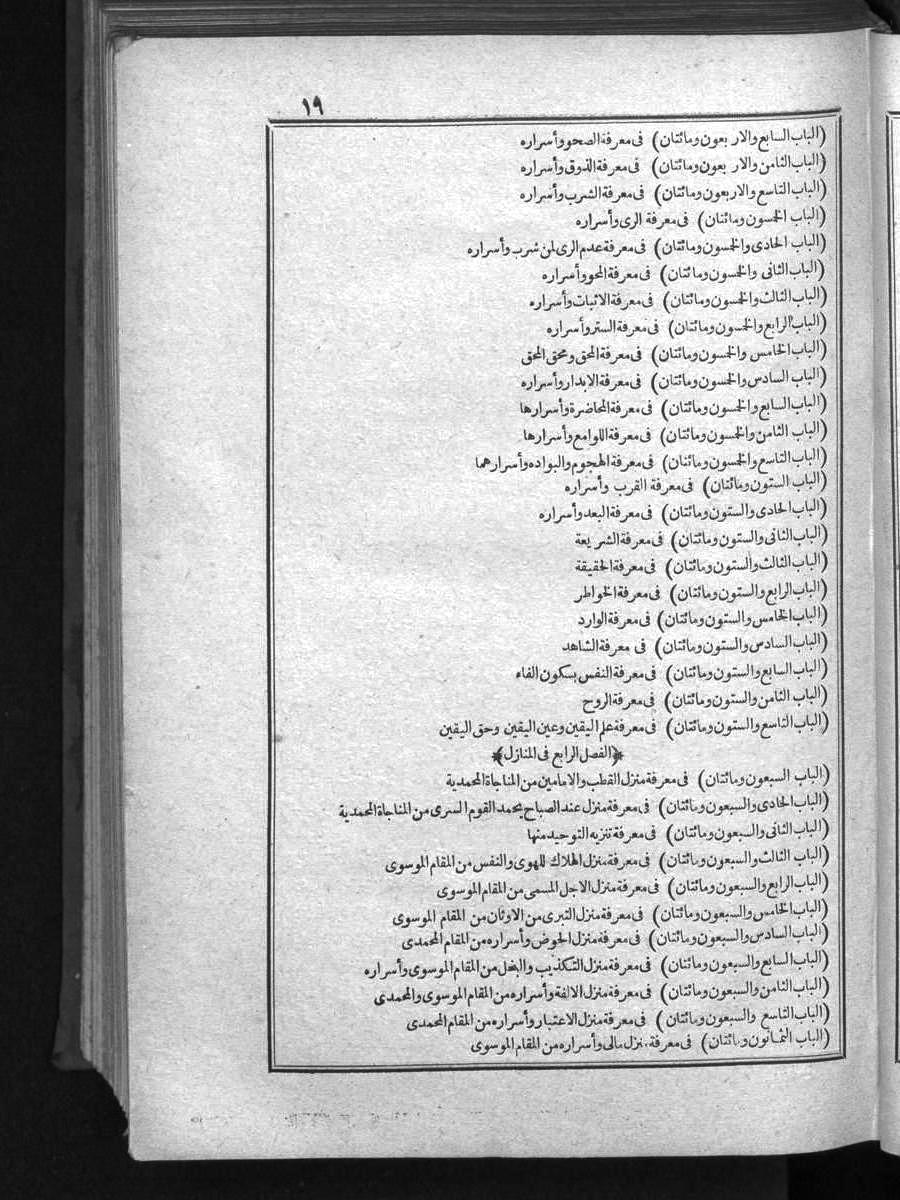 ١٩
(الباب السابع والاربعون ومائتان) فى معرفة الصحو وأسراره
(الباب الثامن والاربعون ومائتان) فى معرفة الذوق وأسراره
(الباب التاسع والاربعون ومائتان) فى معرفة الشرب وأسراره
(الباب الخمسون ومائتان) فى معرفة الرى وأسراره
(الباب الحادى والخمسون ومائتان) فى معرفة عدم الرى لمن شرب وأسراره
(الباب الثانى والخمسون ومائتان) فى معرفة المحو وأسراره
(الباب الثالث والخمسون ومائتان) فى معرفة الاثبات وأسراره
(الباب الرابع والخمسون ومائتان) فى معرفة الستر وأسراره
(الباب الخامس والخمسون ومائتان) فى معرفة المحق ومحق المحق
(الباب السادس والخمسون ومائتان) فى معرفة الابدار وأسراره
(الباب السابع والخمسون ومائتان) فى معرفة المحاضرة وأسرارها
(الباب الثامن والخمسون ومائتان) فى معرفة اللوامع وأسرارها
(الباب التاسع والخمسون ومائتان) فى معرفة الهجوم والبواده وأسرارهما
(الباب الستون ومائتان) فى معرفة القرب وأسراره
(الباب الحادى والستون ومائتان) فى معرفة البعد وأسراره
(الباب الثانى والستون ومائتان) فى معرفة الشريعة
(الباب الثالث والستون ومائتان) فى معرفة الحقيقة
(الباب الرابع والستون ومائتان) فى معرفة الخواطر
(الباب الخامس والستون ومائتان) فى معرفة الوارد
(الباب السادس والستون ومائتان) فى معرفة الشاهد
(الباب السابع والستون ومائتان) فى معرفة النفس بسكون الفاء
(الباب الثامن والستون ومائتان) فى معرفة الروح
(الباب التاسع والستون ومائتان) فى معرفة علم اليقين وعين اليقين وحق اليقين
﴿الفصل الرابع فى المنازل﴾
(الباب السبعون ومائتان) فى معرفة منزل القطب والامامين من المناجاة المحمدية
(الباب الحادى والسبعون ومائتان) فى معرفة منزل عند الصباح يحمد القوم السرى من المناجاة المحمدية
(الباب الثانى والسبعون ومائتان) فى معرفة تنزيه التوحيد منها
(الباب الثالث والسبعون ومائتان) فى معرفة منزل الهلاك للهوى والنفس من المقام الموسوى
(الباب الرابع والسبعون ومائتان) فى معرفة منزل الاجل المسمى من المقام الموسوى
(الباب الخامس والسبعون ومائتان) فى معرفة منزل التبرى من الاوثان من المقام الموسوى
(الباب السادس والسبعون ومائتان) فى معرفة منزل الحوض وأسراره من المقام المحمدى
(الباب السابع والسبعون ومائتان) فى معرفة منزل التكذيب والبخل من المقام الموسوى وأسراره
(الباب الثامن والسبعون ومائتان) فى معرفة منزل الالفة وأسراره من المقام الموسوى والمحمدى
(الباب التاسع والسبعون ومائتان) فى معرفة منزل الاعتبار وأسراره من المقام المحمدى
(الباب الثمانون ومائتان) فى معرفة منزل مالى وأسراره من المقام الموسوى